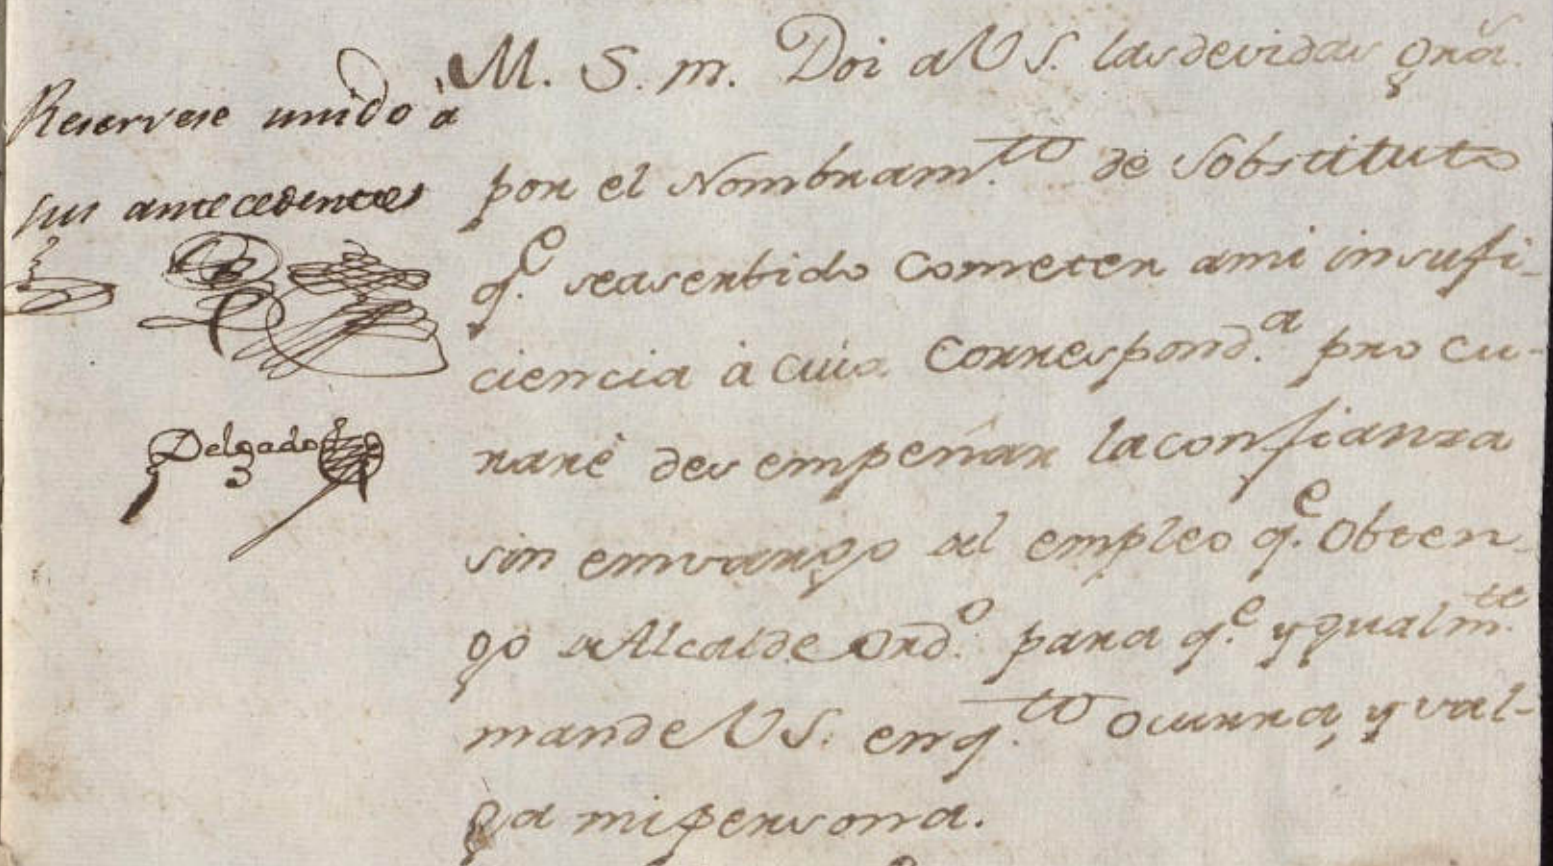 Reservese unido à
sus antecedentes
Delgado
M. S. m. Doi a V S. las devidas gra.s
por el Nombram.to de Sobstituto
q.e seaserbido Cometer ami insufi-
ciencia à cuia Correspond.a procu-
raré desempeñar laconfianza
sin emvargo del empleo q.e Obten-
go de Alcalde Ord.o para q.e ygualm.te
mande V S. enq.to Ocurra, y val-
ga mipersona.